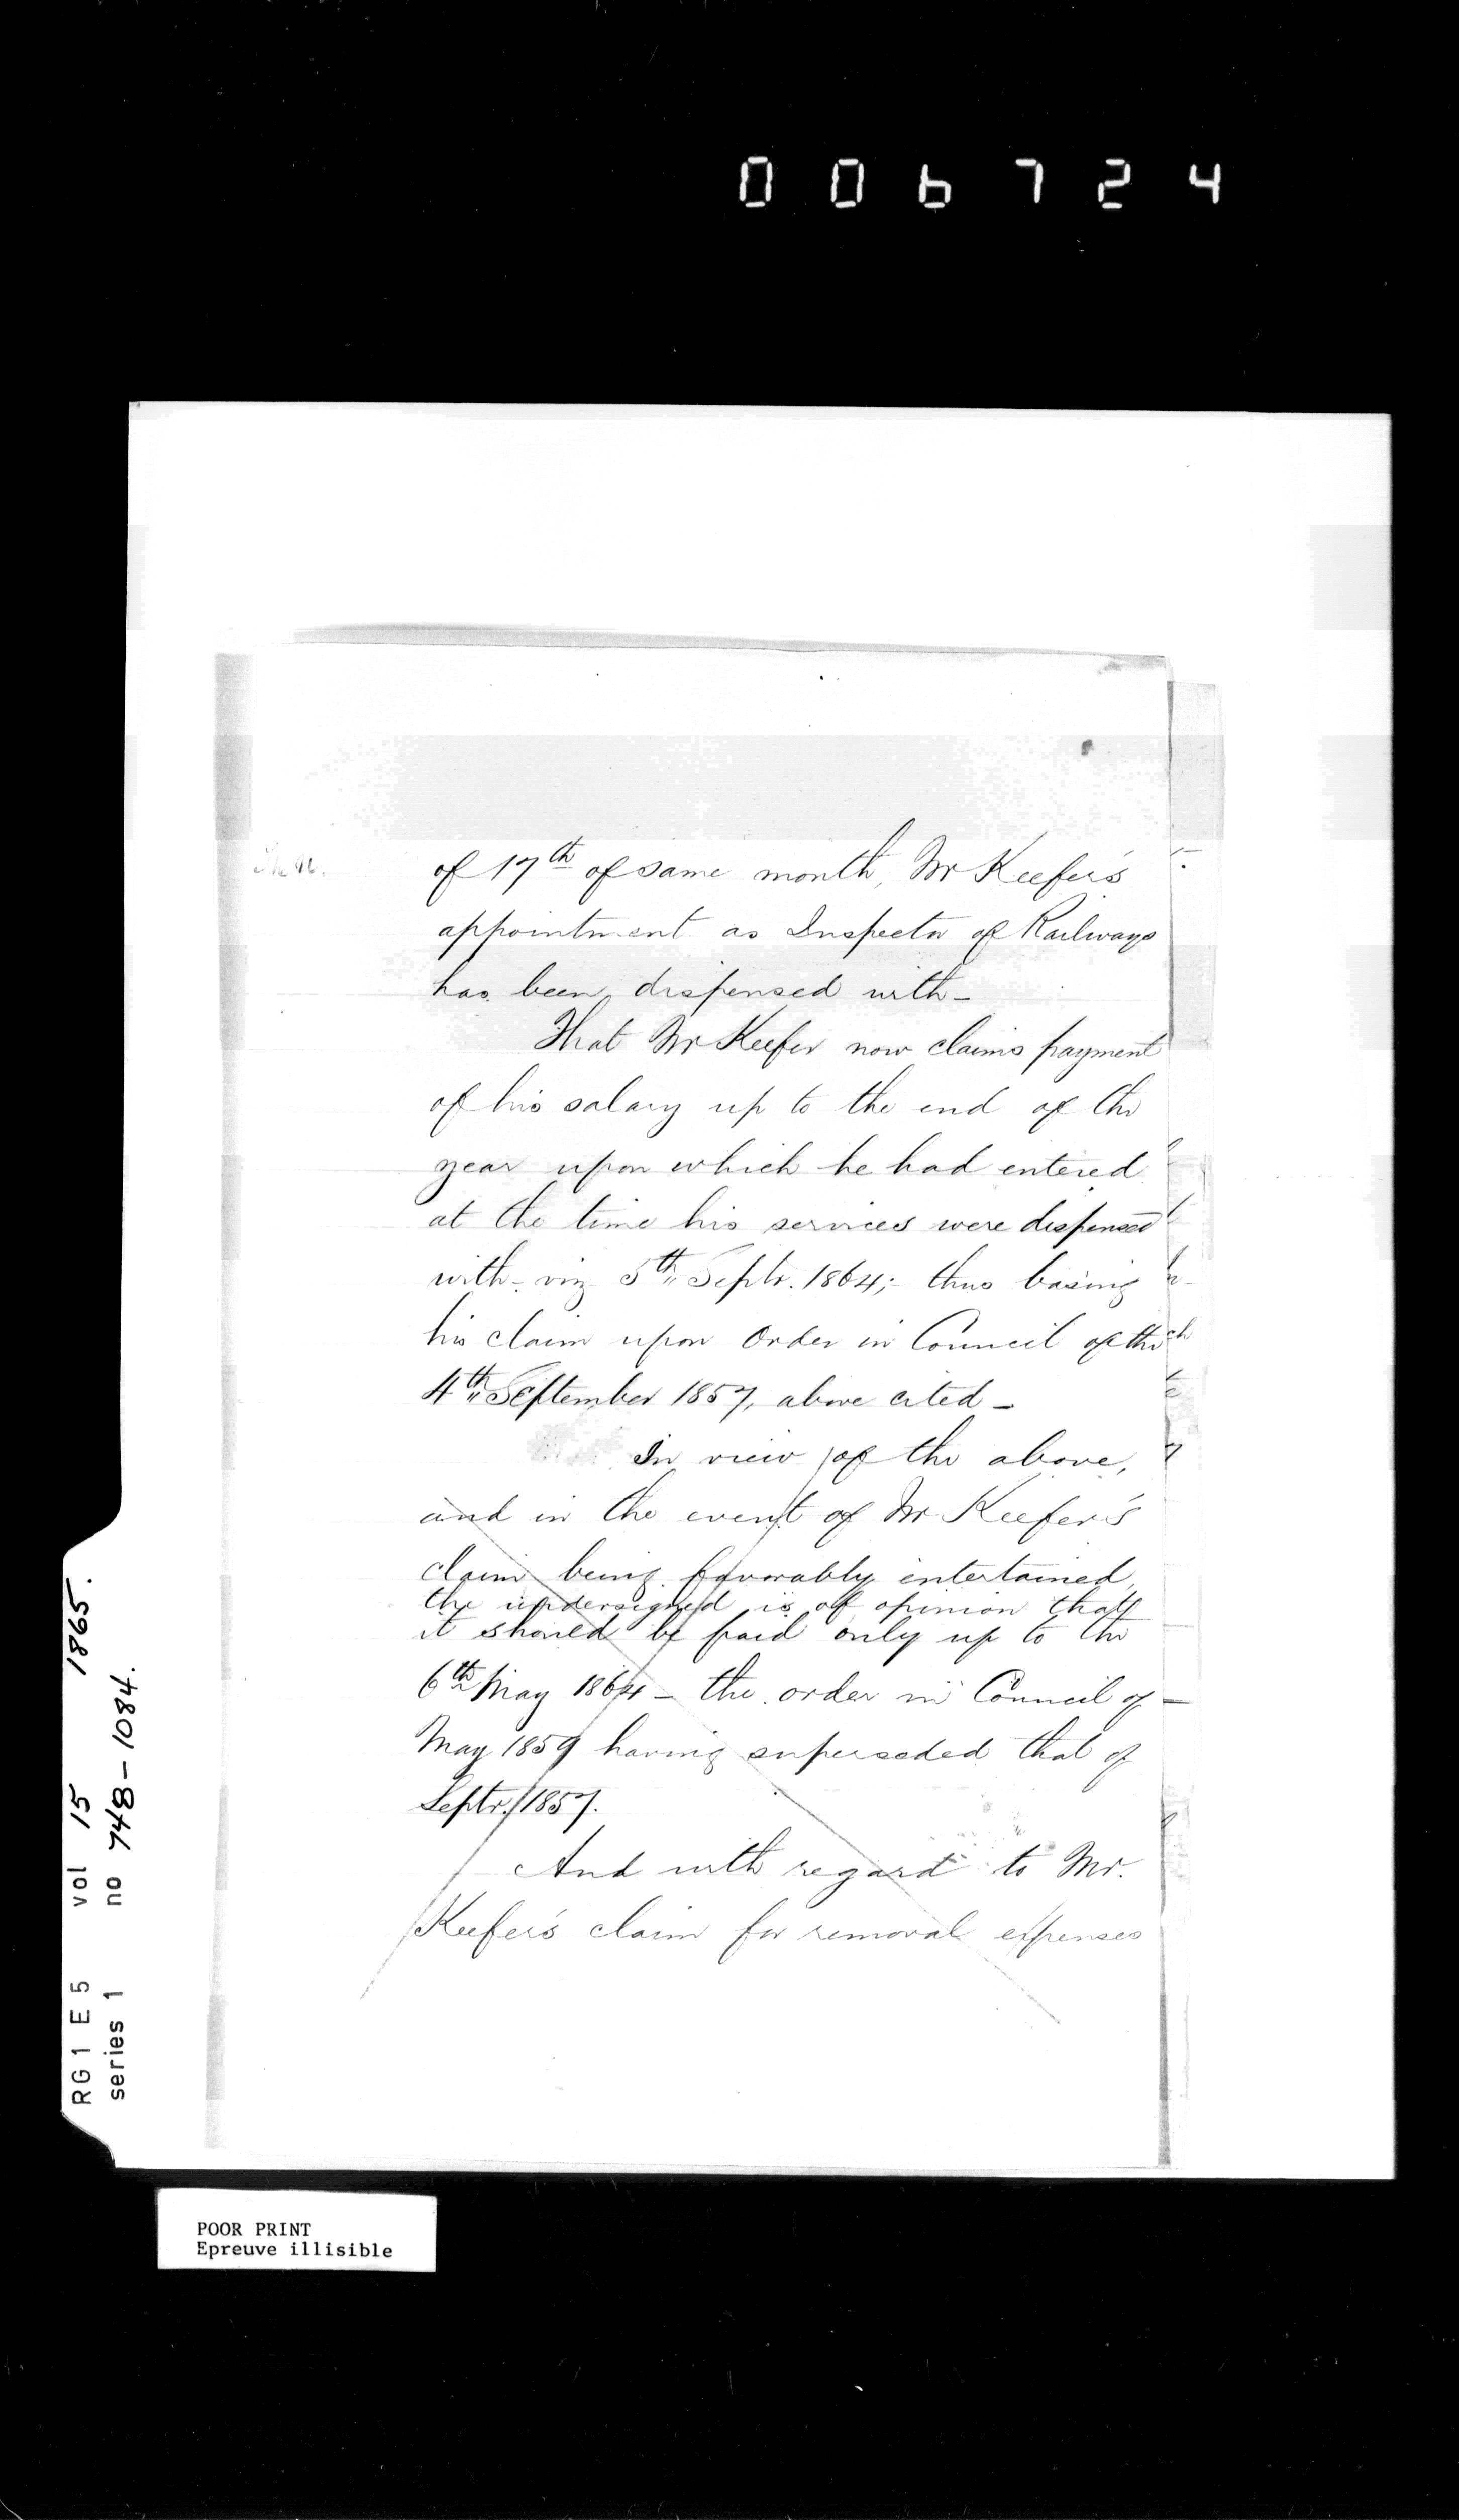 006724
of 17th of same month, Mr Keefer's
appointment as Inspector of Railways
has been dispensed with_
That Mr Keefer now claims payment
of his salary up to the end of the
year upon which he had entered
at the time his services were dispensed
with - viz 5th Septr. 1864; - thus basing
his claim upon Order in Council of the
4th September 1857, above cited _
In view of the above,
and in the event of Mr Keefer's
claim being favorably entertained,
the undersigned is of opinion that
it should be paid only up to the
6th May 1864 _ the order in Council of _
May 1859 having superseded that of
Septr. 1857.
And with regard to Mr.
Keefer's claim for removal expenses
RG1 E5 vol 15 1865.
series 1 no 748-1084.
POOR PRINT
Epreuve illisible